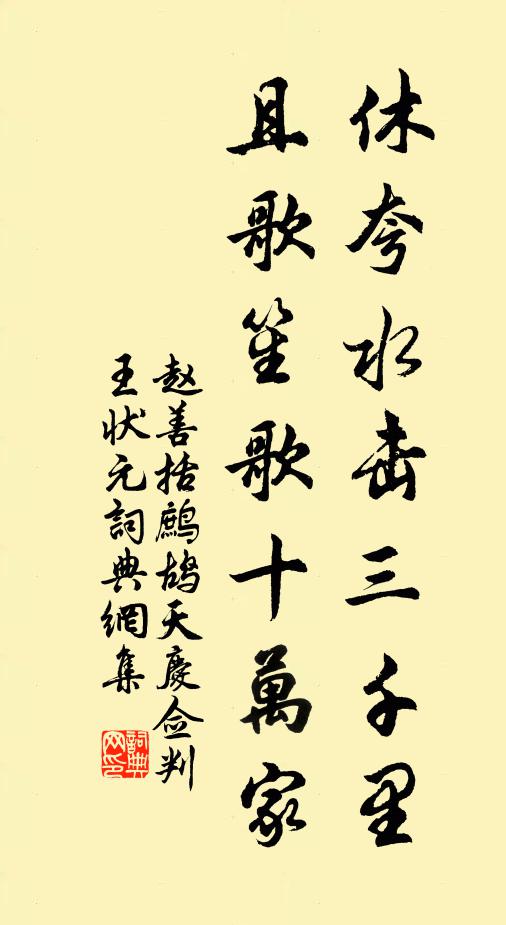 休夸水击三千里
且歌笙歌十萬家
赵善括鷓鴣天慶佥判
王状元詞典網集
詞典
网印